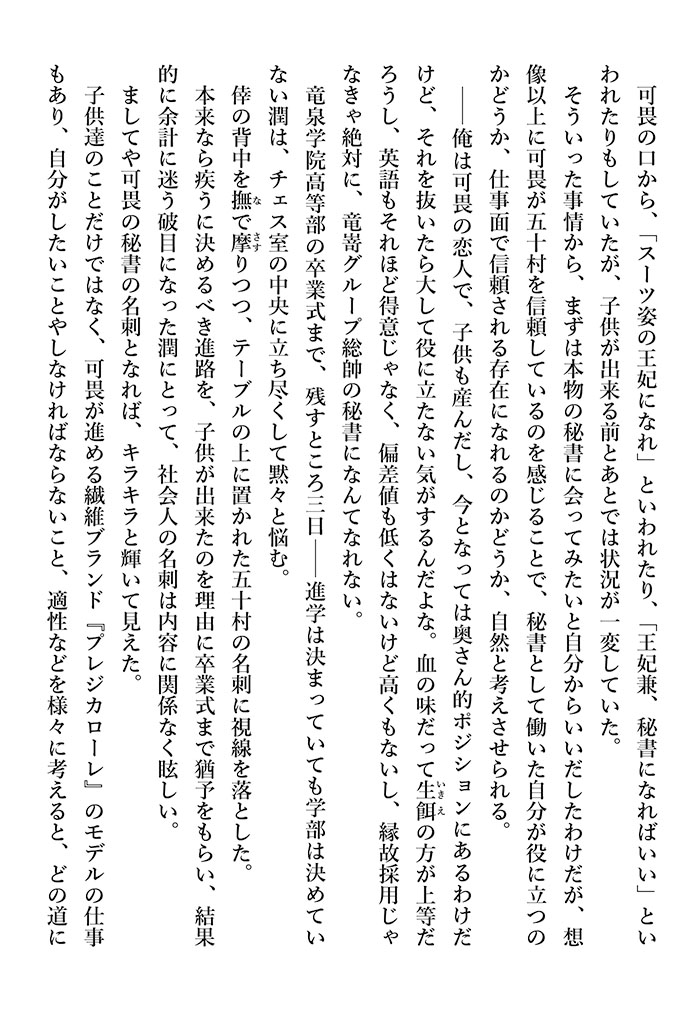 可畏の口から、「スーツ姿の王妃になれ」といわれたり、「王妃兼、秘書になればいい」とい
われたりもしていたが、子供が出来る前とあとでは状況が一変していた。
そういった事情から、まずは本物の秘書に会ってみたいと自分からいいだしたわけだが、想
像以上に可畏が五十村を信頼しているのを感じることで、秘書として働いた自分が役に立つの
かどうか、仕事面で信頼される存在になれるのかどうか、自然と考えさせられる。
――俺は可畏の恋人で、子供も産んだし、今となっては奥さん的ポジションにあるわけだ
けど、それを抜いたら大して役に立たない気がするんだよな。血の味だって生餌の方が上等だ
ろうし、英語もそれほど得意じゃなく、偏差値も低くはないけど高くもないし、縁故採用じゃ
なきゃ絶対に、竜嵜グループ総帥の秘書になんてなれない。
竜泉学院高等部の卒業式まで、残すところ三日――進学は決まっていても学部は決めてい
ない潤は、チェス室の中央に立ち尽くして黙々と悩む。
倖の背中を撫で摩りつつ、テーブルの上に置かれた五十村の名刺に視線を落とした。
本来なら疾うに決めるべき進路を、子供が出来たのを理由に卒業式まで猶予をもらい、結果
的に余計に迷う破目になった潤にとって、社会人の名刺は内容に関係なく眩しい。
ましてや可畏の秘書の名刺となれば、キラキラと輝いて見えた。
子供達のことだけではなく、可畏が進める繊維ブランド『プレジカローレ』のモデルの仕事
もあり、自分がしたいことやしなければならないこと、適性などを様々に考えると、どの道に